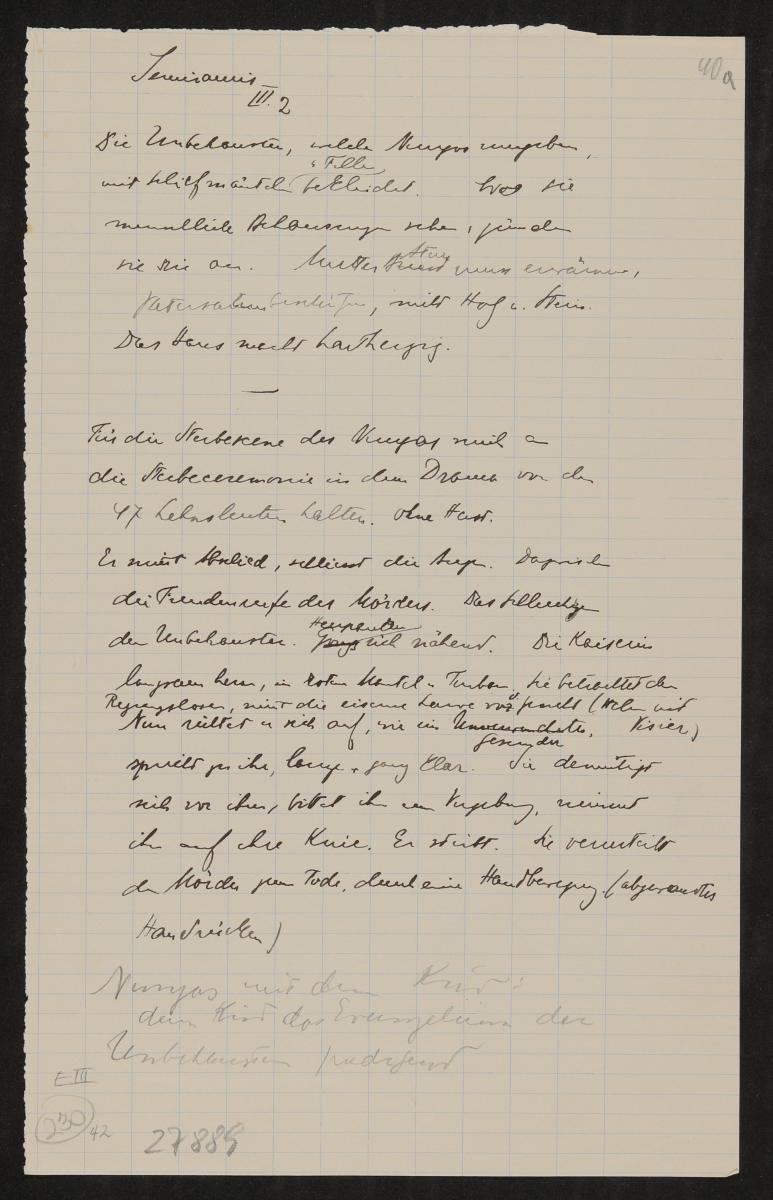 Semiramis
III. 2
40a
Die Unbehausten, welche Ninyas umgeben,
mit Schilfmänteln u Fellen bekleidet. Wo sie
menschliche Behausungen sehen, zünden
sie sie an. Mutter muss erwärmen,
, nicht Holz u. Stein.
Das Haus macht hartherzig.
Für die Sterbescene des Ninyas mich an
die Sterbeceremonie in dem Drama von den
47 Lehnsleuten halten. Ohne Hast.
Er nimt Abschied, schliesst die Augen. Dazwischen
die Freudenrufe des Mörders. Das Schluchzen
der Unbehausten. sich nähend. Die Kaiserin
langsam heran, in rotem Mantel u Turban, sie betrachtet den
Regungslosen, nimt die eiserne Larve vors Gesicht (Helm mit
Visier)
Nun richtet er sich auf, wie ein
Gesunder
spricht zu ihr, lange u ganz klar. Sie demütigt
sich vor ihm, bittet ihn um Vergebung, nimmt
ihn auf ihre Knie. Er stirbt. Sie verurteilt
den Mörder zum Tode, durch eine Handbewegung (abgewandter
Handrücken)
Ninyas mit dem Kind:
dem Kind das Evangelium der
Unbehausten predigend
E III
230
42
27889